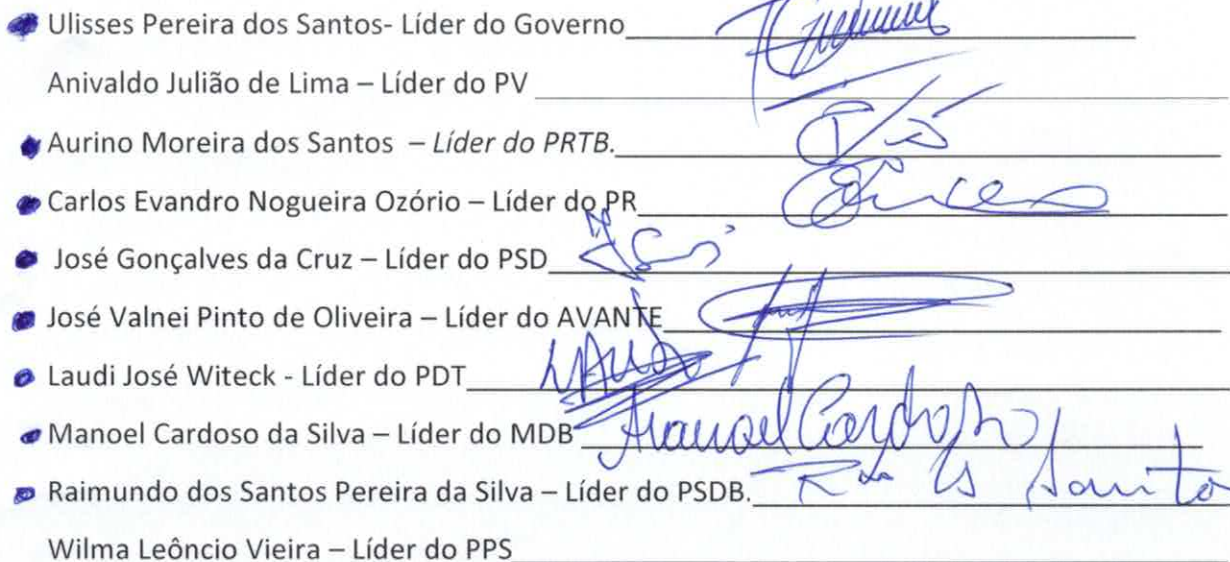 Ulisses Pereira dos Santos- Líder do Governo
Anivaldo Julião de Lima – Líder do PV
Aurino Moreira dos Santos – Líder do PRTB.
Carlos Evandro Nogueira Ozório – Líder do PR
José Gonçalves da Cruz – Líder do PSD
José Valnei Pinto de Oliveira – Líder do AVANTE
Laudi José Witeck - Líder do PDT
Manoel Cardoso da Silva – Líder do MDB Manoel Cardoso
Raimundo dos Santos Pereira da Silva – Líder do PSDB.
Wilma Leôncio Vieira – Líder do PPS